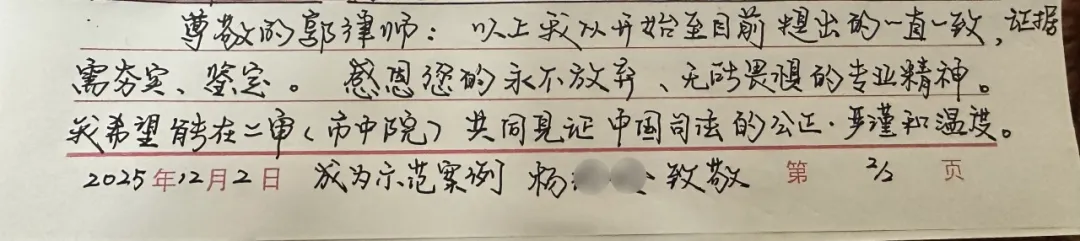 尊敬的郭律师：以上我从开始至目前提出的一直一致，证据
需夯实、鉴定。感恩您的永不放弃、无所畏惧的专业精神。
我希望能在二审（市中院）共同见证中国司法的公正·严谨和温度。
2025年12月2日 成为示范案例 杨 致敬 第 2/2 页